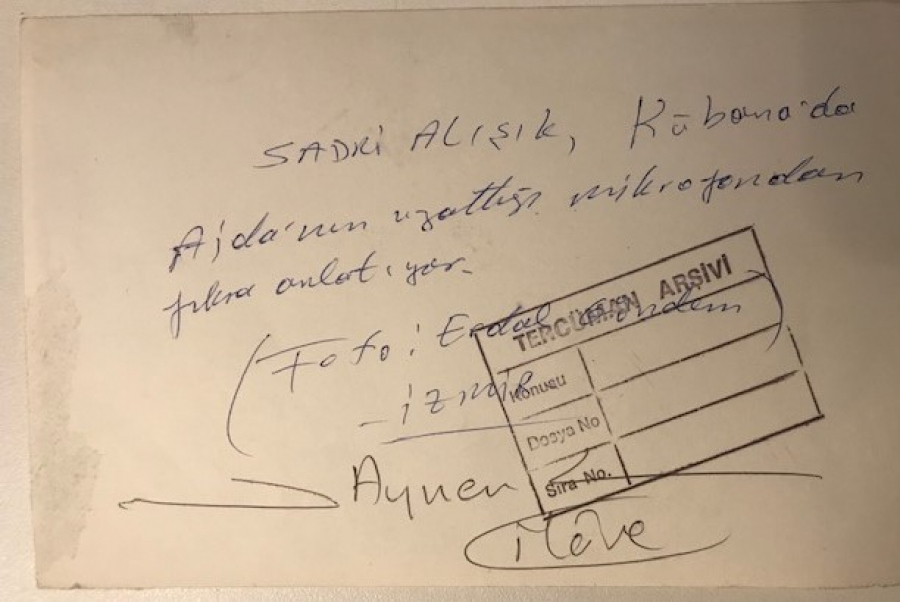 SADRİ ALIŞIK, Kübana'da
Ajda'nın uzattığı mikrofondan
fıkra anlatıyor.
(Foto: Erdal Gündem)
-İZMİR
TERCÜMAN ARŞİVİ
Konusu
Dosya No
Sıra No.
Aynen
ilave